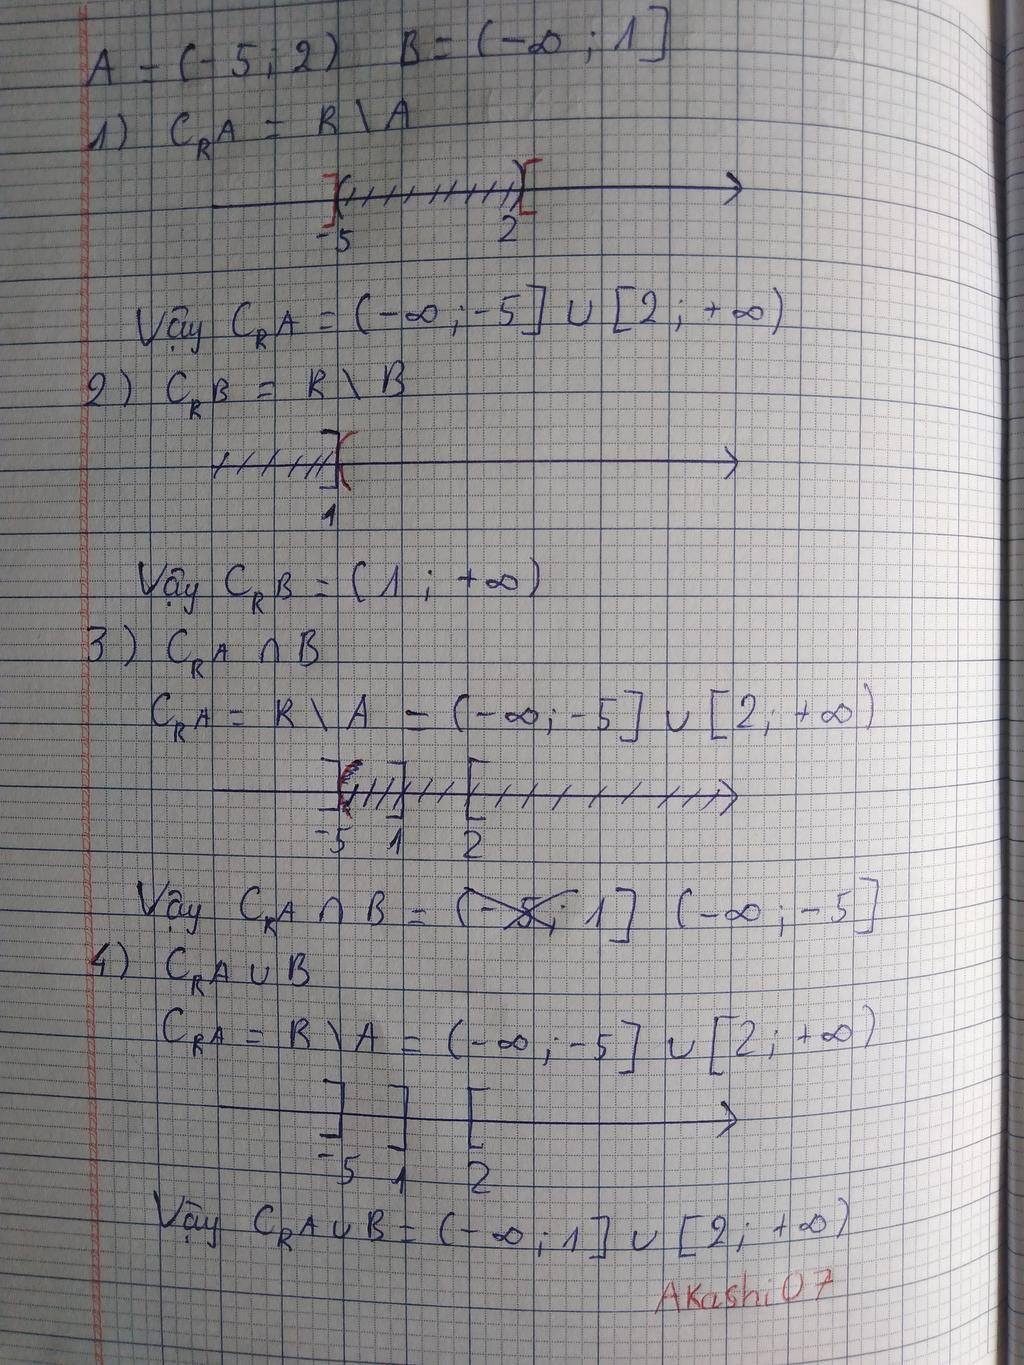 A = (-5; 2) B = (-∞; 1]
1) C_R A = R \ A
-5 2
Vậy C_R A = (-∞; -5] ∪ [2; +∞)
2) C_R B = R \ B
1
Vậy C_R B = (1; +∞)
3) C_R A ∩ B
C_R A = R \ A = (-∞; -5] ∪ [2; +∞)
-5 1 2
Vậy C_R A ∩ B = (-5; 1] (-∞; -5]
4) C_R A ∪ B
C_R A = R \ A = (-∞; -5] ∪ [2; +∞)
-5 1 2
Vậy C_R A ∪ B = (-∞; 1] ∪ [2; +∞)
Akashi07